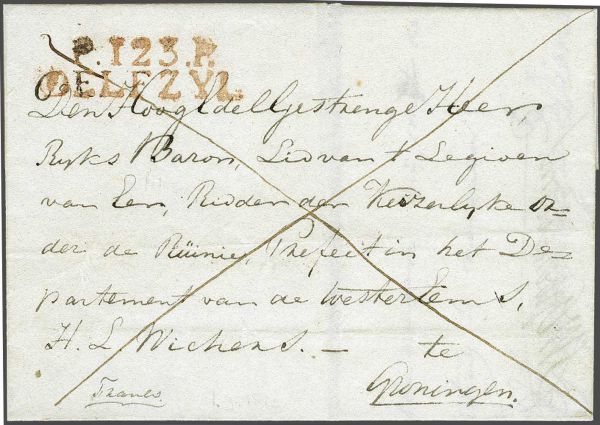 P.123.P.
DELFZYL.
Den HoogEdelGestrenge Heer
Ryks Baron, Lid van t Legioen
van Eer, Ridder der Keizerlyke or=
der de Reünie, Prefect in het De=
partement van de Wester Ems,
H. L Wichers. — te
Groningen.
Franco.